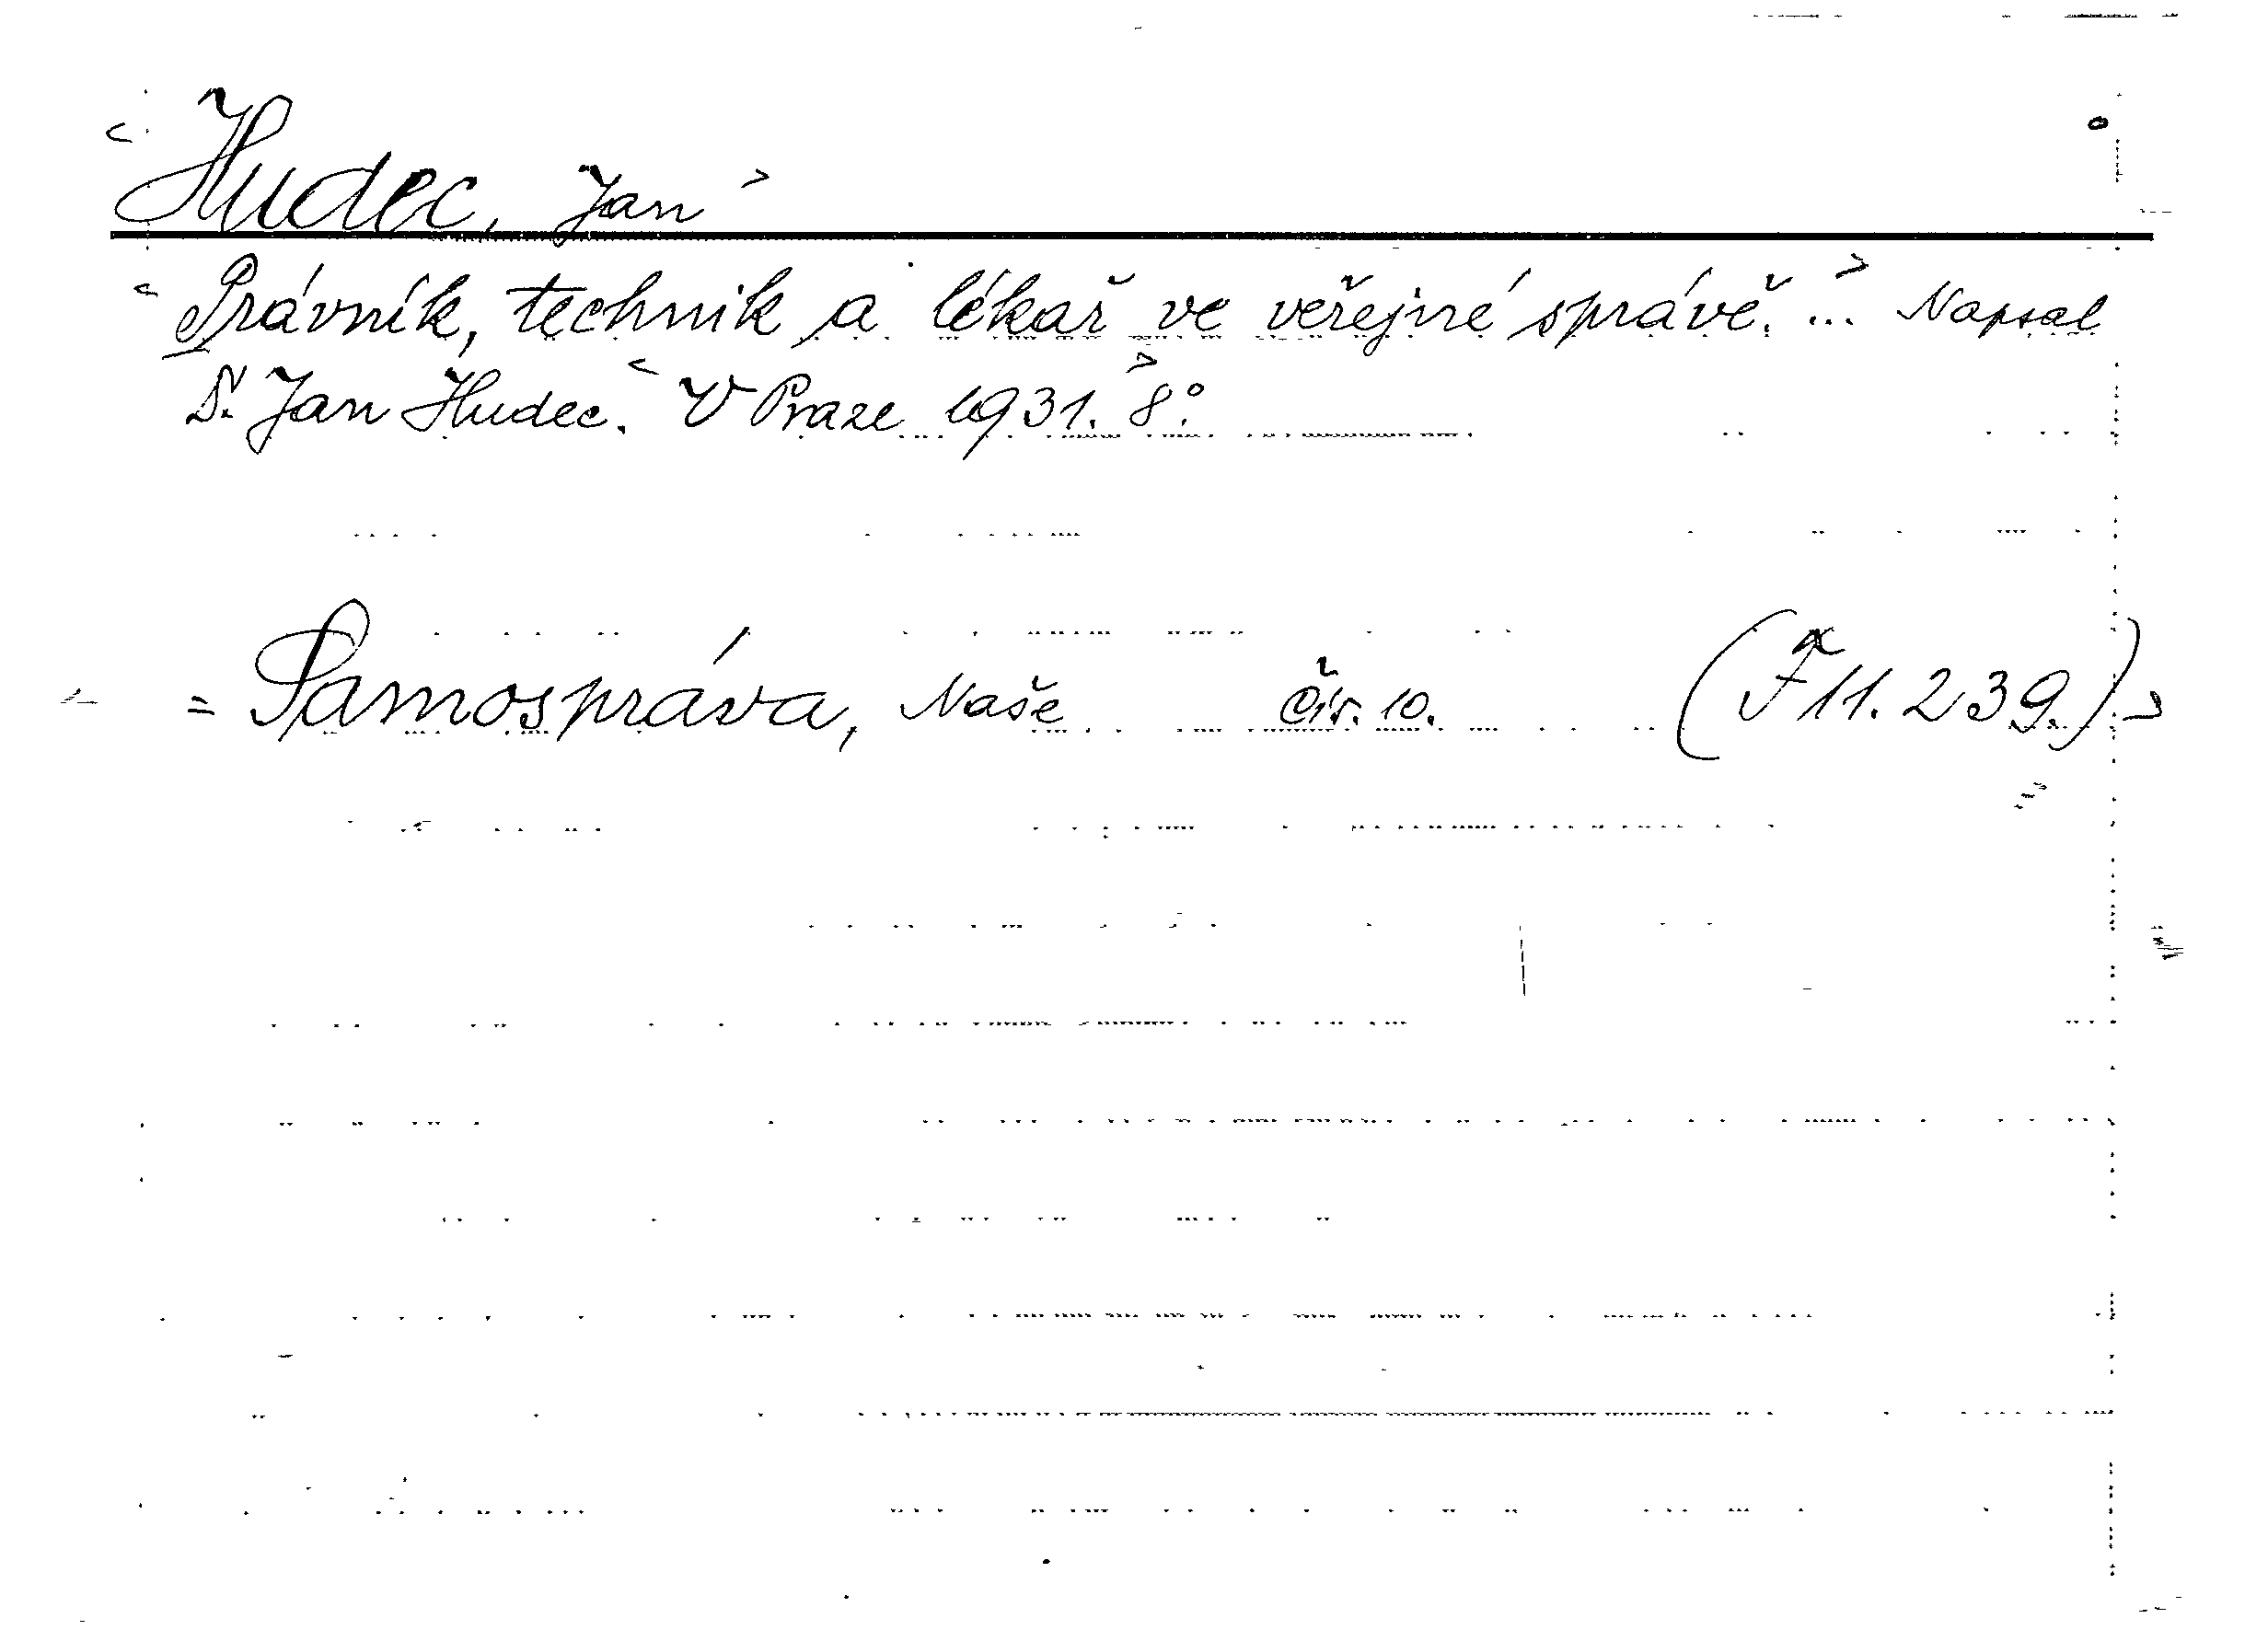 < Hudec, Jan >
< Právník, technik a lékař ve veřejné správě. ... > Napsal
Dr. Jan Hudec. < V Praze 1931. > 8°.
= Samospráva, Naše čís. 10. (F 11.239.)